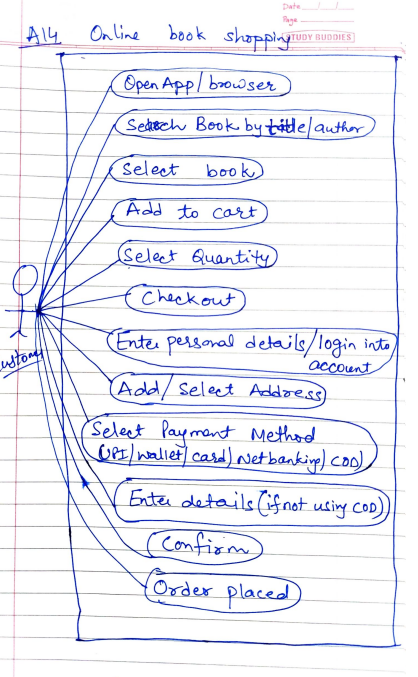 Date / /
Page
STUDY BUDDIES
A14 Online book shopping
Open App/browser
Search Book by title/author
Select book
Add to cart
Select Quantity
Checkout
Enter personal details/login into
account
Add/Select Address
Select Payment Method
(UPI/wallet/card/Netbanking/COD)
Enter details (if not using COD)
Confirm
Order placed
ustomer